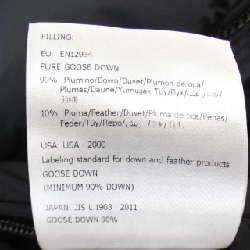 FILLING:
EU: EN12934
PURE GOOSE DOWN
90% Piumino/Down/Duvet/Plumon de oca/
Plumas/Daune/Yumuşak Tüy/Пух/
10% Piuma/Feather/Duvet/Pluma de oca/Penas/
Feder/Tüy/Перо/
USA: USA - 2000
Labeling standard for down and feather products
GOOSE DOWN
(MINIMUM 90% DOWN)
JAPAN: JIS L 1903 - 2011
GOOSE DOWN 90%